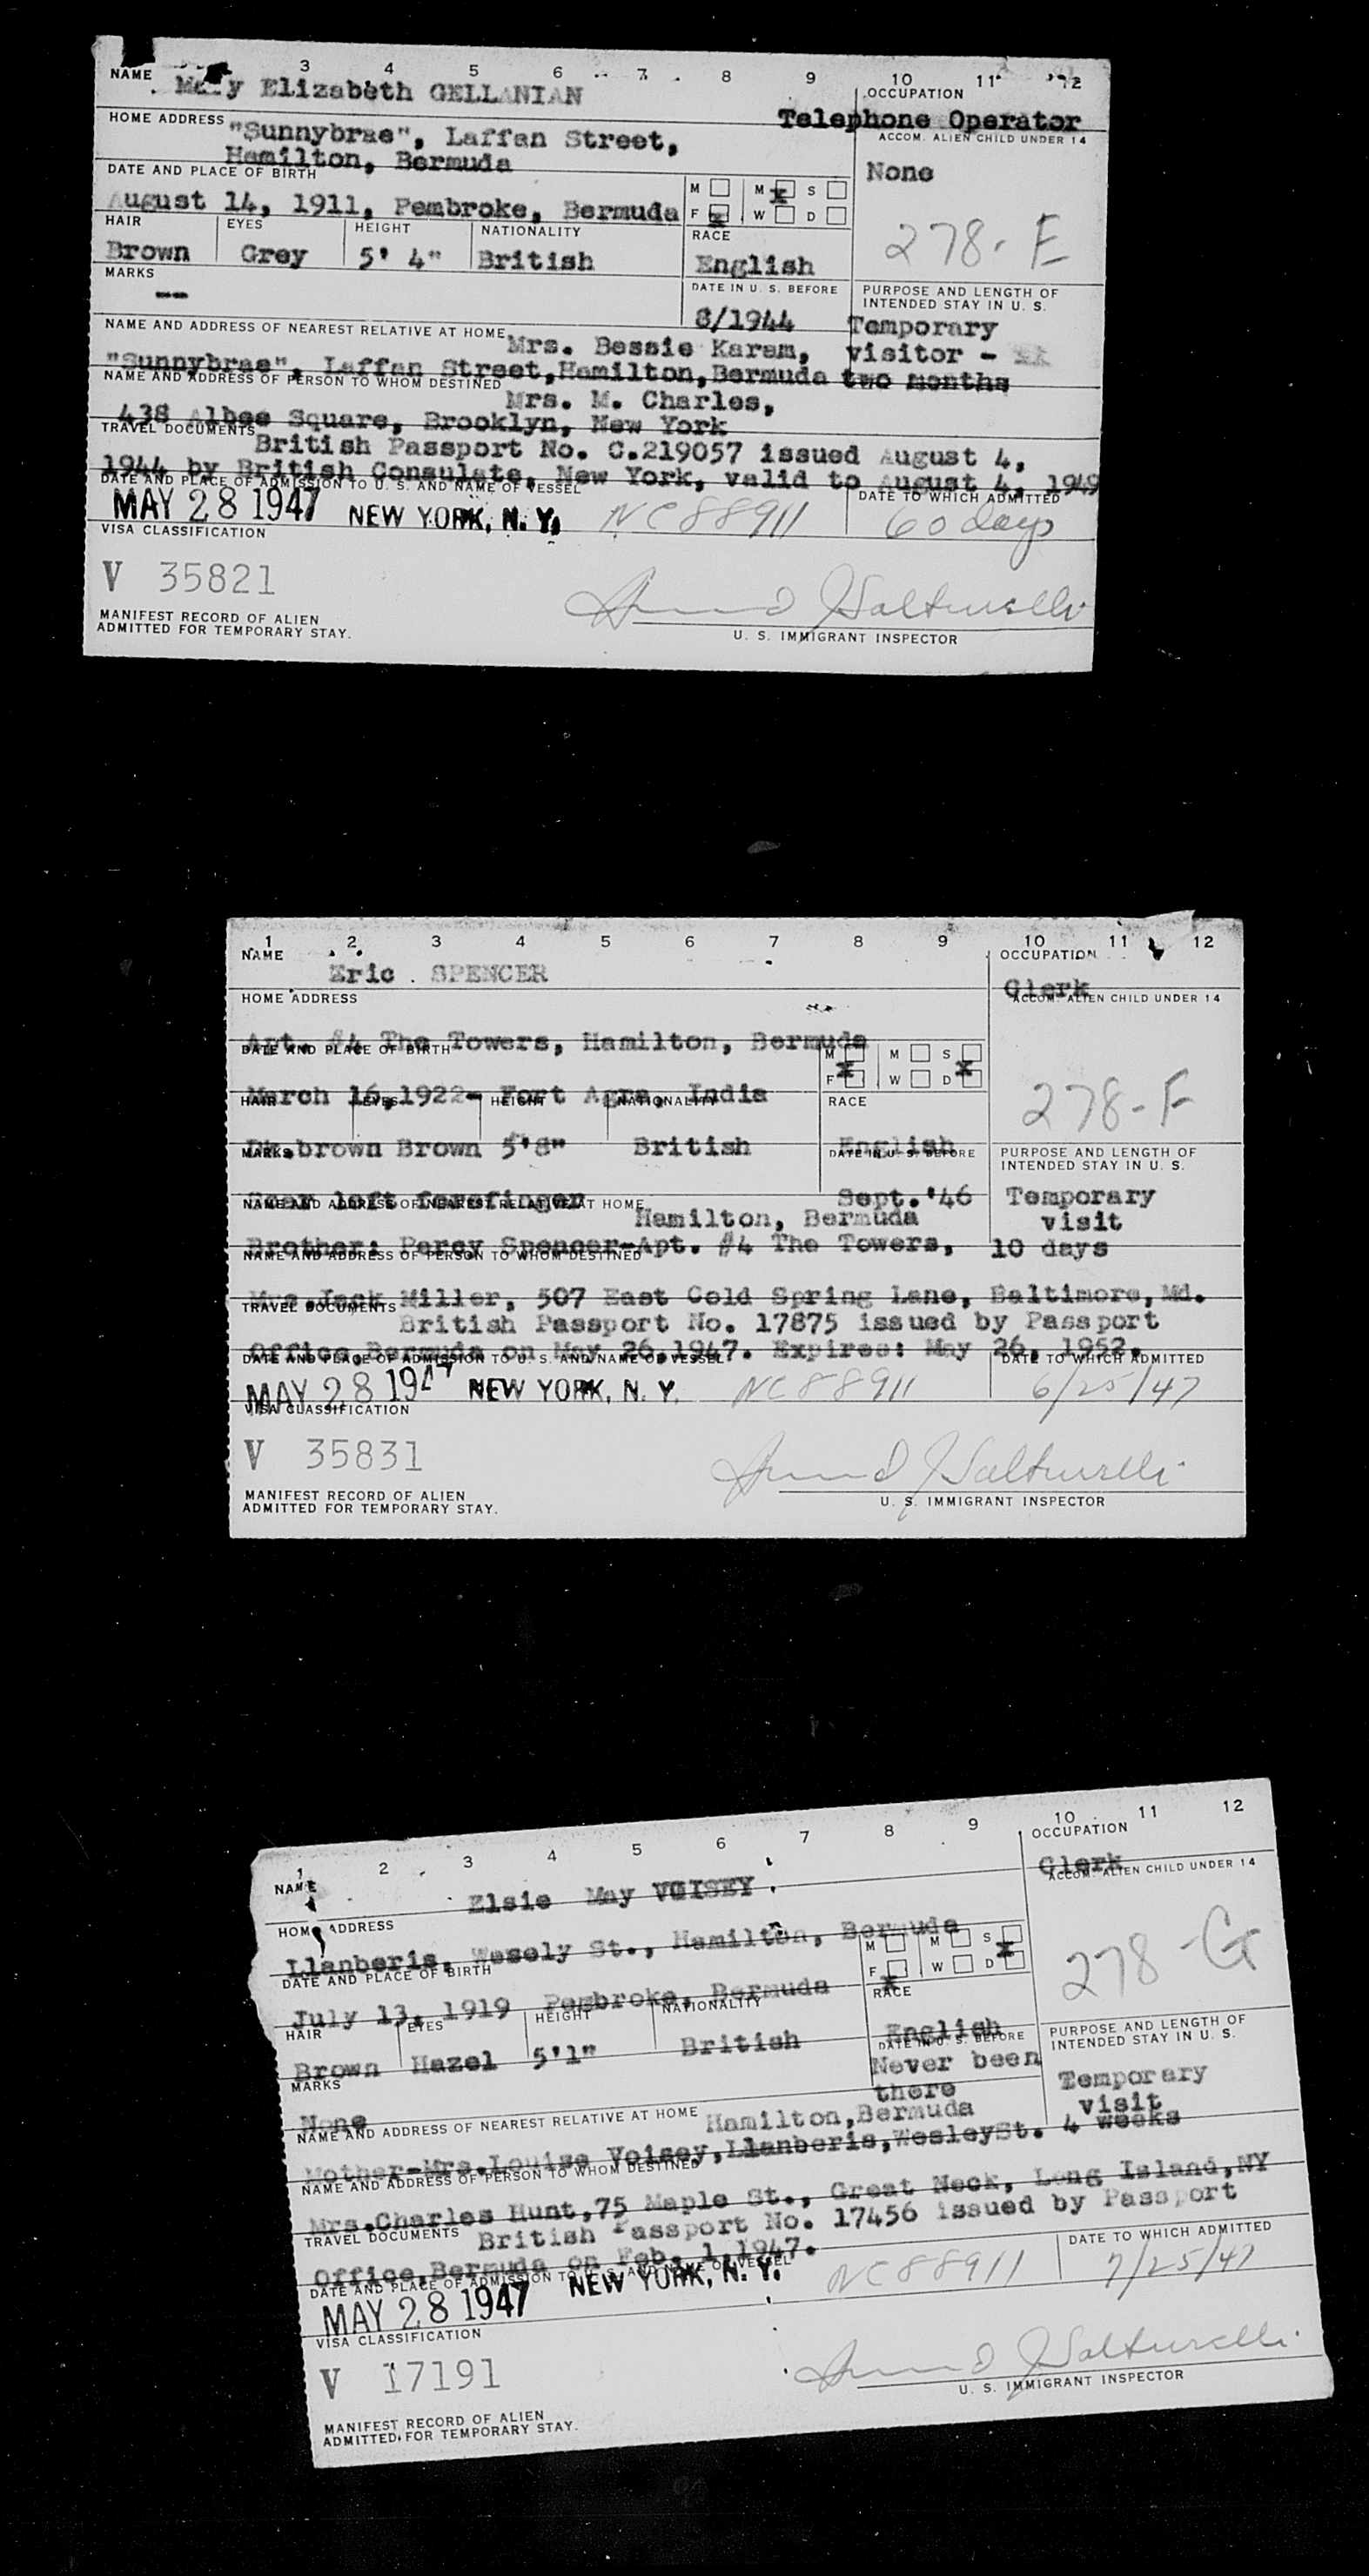 3 4 5 6 7 8 9 10 11 12
NAME Mary Elizabeth GELLANIAN
OCCUPATION
Telephone Operator
HOME ADDRESS "Sunnybrae", Laffan Street,
Hamilton, Bermuda
ACCOM. ALIEN CHILD UNDER 14
None
DATE AND PLACE OF BIRTH
August 14, 1911, Pembroke, Bermuda
M M X S
F X W D
278-E
HAIR EYES HEIGHT NATIONALITY RACE
Brown Grey 5' 4" British English
MARKS DATE IN U. S. BEFORE PURPOSE AND LENGTH OF
INTENDED STAY IN U. S.
-- 8/1944 Temporary
NAME AND ADDRESS OF NEAREST RELATIVE AT HOME Mrs. Bessie Karam, visitor -
"Sunnybrae", Laffan Street,Hamilton,Bermuda two months
NAME AND ADDRESS OF PERSON TO WHOM DESTINED
Mrs. M. Charles,
438 Albee Square, Brooklyn, New York
TRAVEL DOCUMENTS
British Passport No. C.219057 issued August 4,
1944 by British Consulate, New York, valid to August 4, 1949
DATE AND PLACE OF ADMISSION TO U. S. AND NAME OF VESSEL DATE TO WHICH ADMITTED
MAY 28 1947 NEW YORK, N. Y. NC88911 60 days
VISA CLASSIFICATION
V 35821
MANIFEST RECORD OF ALIEN
ADMITTED FOR TEMPORARY STAY.
U. S. IMMIGRANT INSPECTOR
1 2 3 4 5 6 7 8 9 10 11 12
NAME OCCUPATION
Eric SPENCER Clerk
HOME ADDRESS ACCOM. ALIEN CHILD UNDER 14
Apt. #4 The Towers, Hamilton, Bermuda
DATE AND PLACE OF BIRTH
M M S
X X
F W D
March 16,1922- Fort Agra, India
278-F
HAIR EYES HEIGHT NATIONALITY RACE
Dk.brown Brown 5'8" British English
MARKS DATE IN U. S. BEFORE PURPOSE AND LENGTH OF
INTENDED STAY IN U. S.
Scar left forefinger Sept.'46 Temporary
NAME AND ADDRESS OF NEAREST RELATIVE AT HOME
Hamilton, Bermuda visit
Brother: Percy Spencer-Apt. #4 The Towers, 10 days
NAME AND ADDRESS OF PERSON TO WHOM DESTINED
Mrs.Jack Miller, 507 East Cold Spring Lane, Baltimore, Md.
TRAVEL DOCUMENTS
British Passport No. 17875 issued by Passport
Office,Bermuda on May 26,1947. Expires: May 26, 1952.
DATE AND PLACE OF ADMISSION TO U. S. AND NAME OF VESSEL DATE TO WHICH ADMITTED
MAY 28 1947 NEW YORK, N. Y. NC88911 6/25/47
VISA CLASSIFICATION
V 35831
MANIFEST RECORD OF ALIEN
ADMITTED FOR TEMPORARY STAY.
U. S. IMMIGRANT INSPECTOR
1 2 3 4 5 6 7 8 9 10 11 12
NAME OCCUPATION
Elsie May VOISEY Clerk
HOME ADDRESS ACCOM. ALIEN CHILD UNDER 14
Llanberis, Wesely St., Hamilton, Bermuda
DATE AND PLACE OF BIRTH
M M S
X
F W D
X
July 13, 1919 Pembroke, Bermuda
278-G
HAIR EYES HEIGHT NATIONALITY RACE
Brown Hazel 5'1" British English
MARKS DATE IN U. S. BEFORE PURPOSE AND LENGTH OF
INTENDED STAY IN U. S.
None Never been
there
Temporary
visit
NAME AND ADDRESS OF NEAREST RELATIVE AT HOME Hamilton,Bermuda
Mother-Mrs.Louise Voisey,Llanberis,WesleySt. 4 weeks
NAME AND ADDRESS OF PERSON TO WHOM DESTINED
Mrs.Charles Hunt,75 Maple St., Great Neck, Long Island,NY
TRAVEL DOCUMENTS British Passport No. 17456 issued by Passport
Office,Bermuda on Feb. 1,1947.
DATE AND PLACE OF ADMISSION TO U. S. AND NAME OF VESSEL DATE TO WHICH ADMITTED
MAY 28 1947 NEW YORK, N. Y. NC88911 7/25/47
VISA CLASSIFICATION
V 17191
MANIFEST RECORD OF ALIEN
ADMITTED FOR TEMPORARY STAY.
U. S. IMMIGRANT INSPECTOR